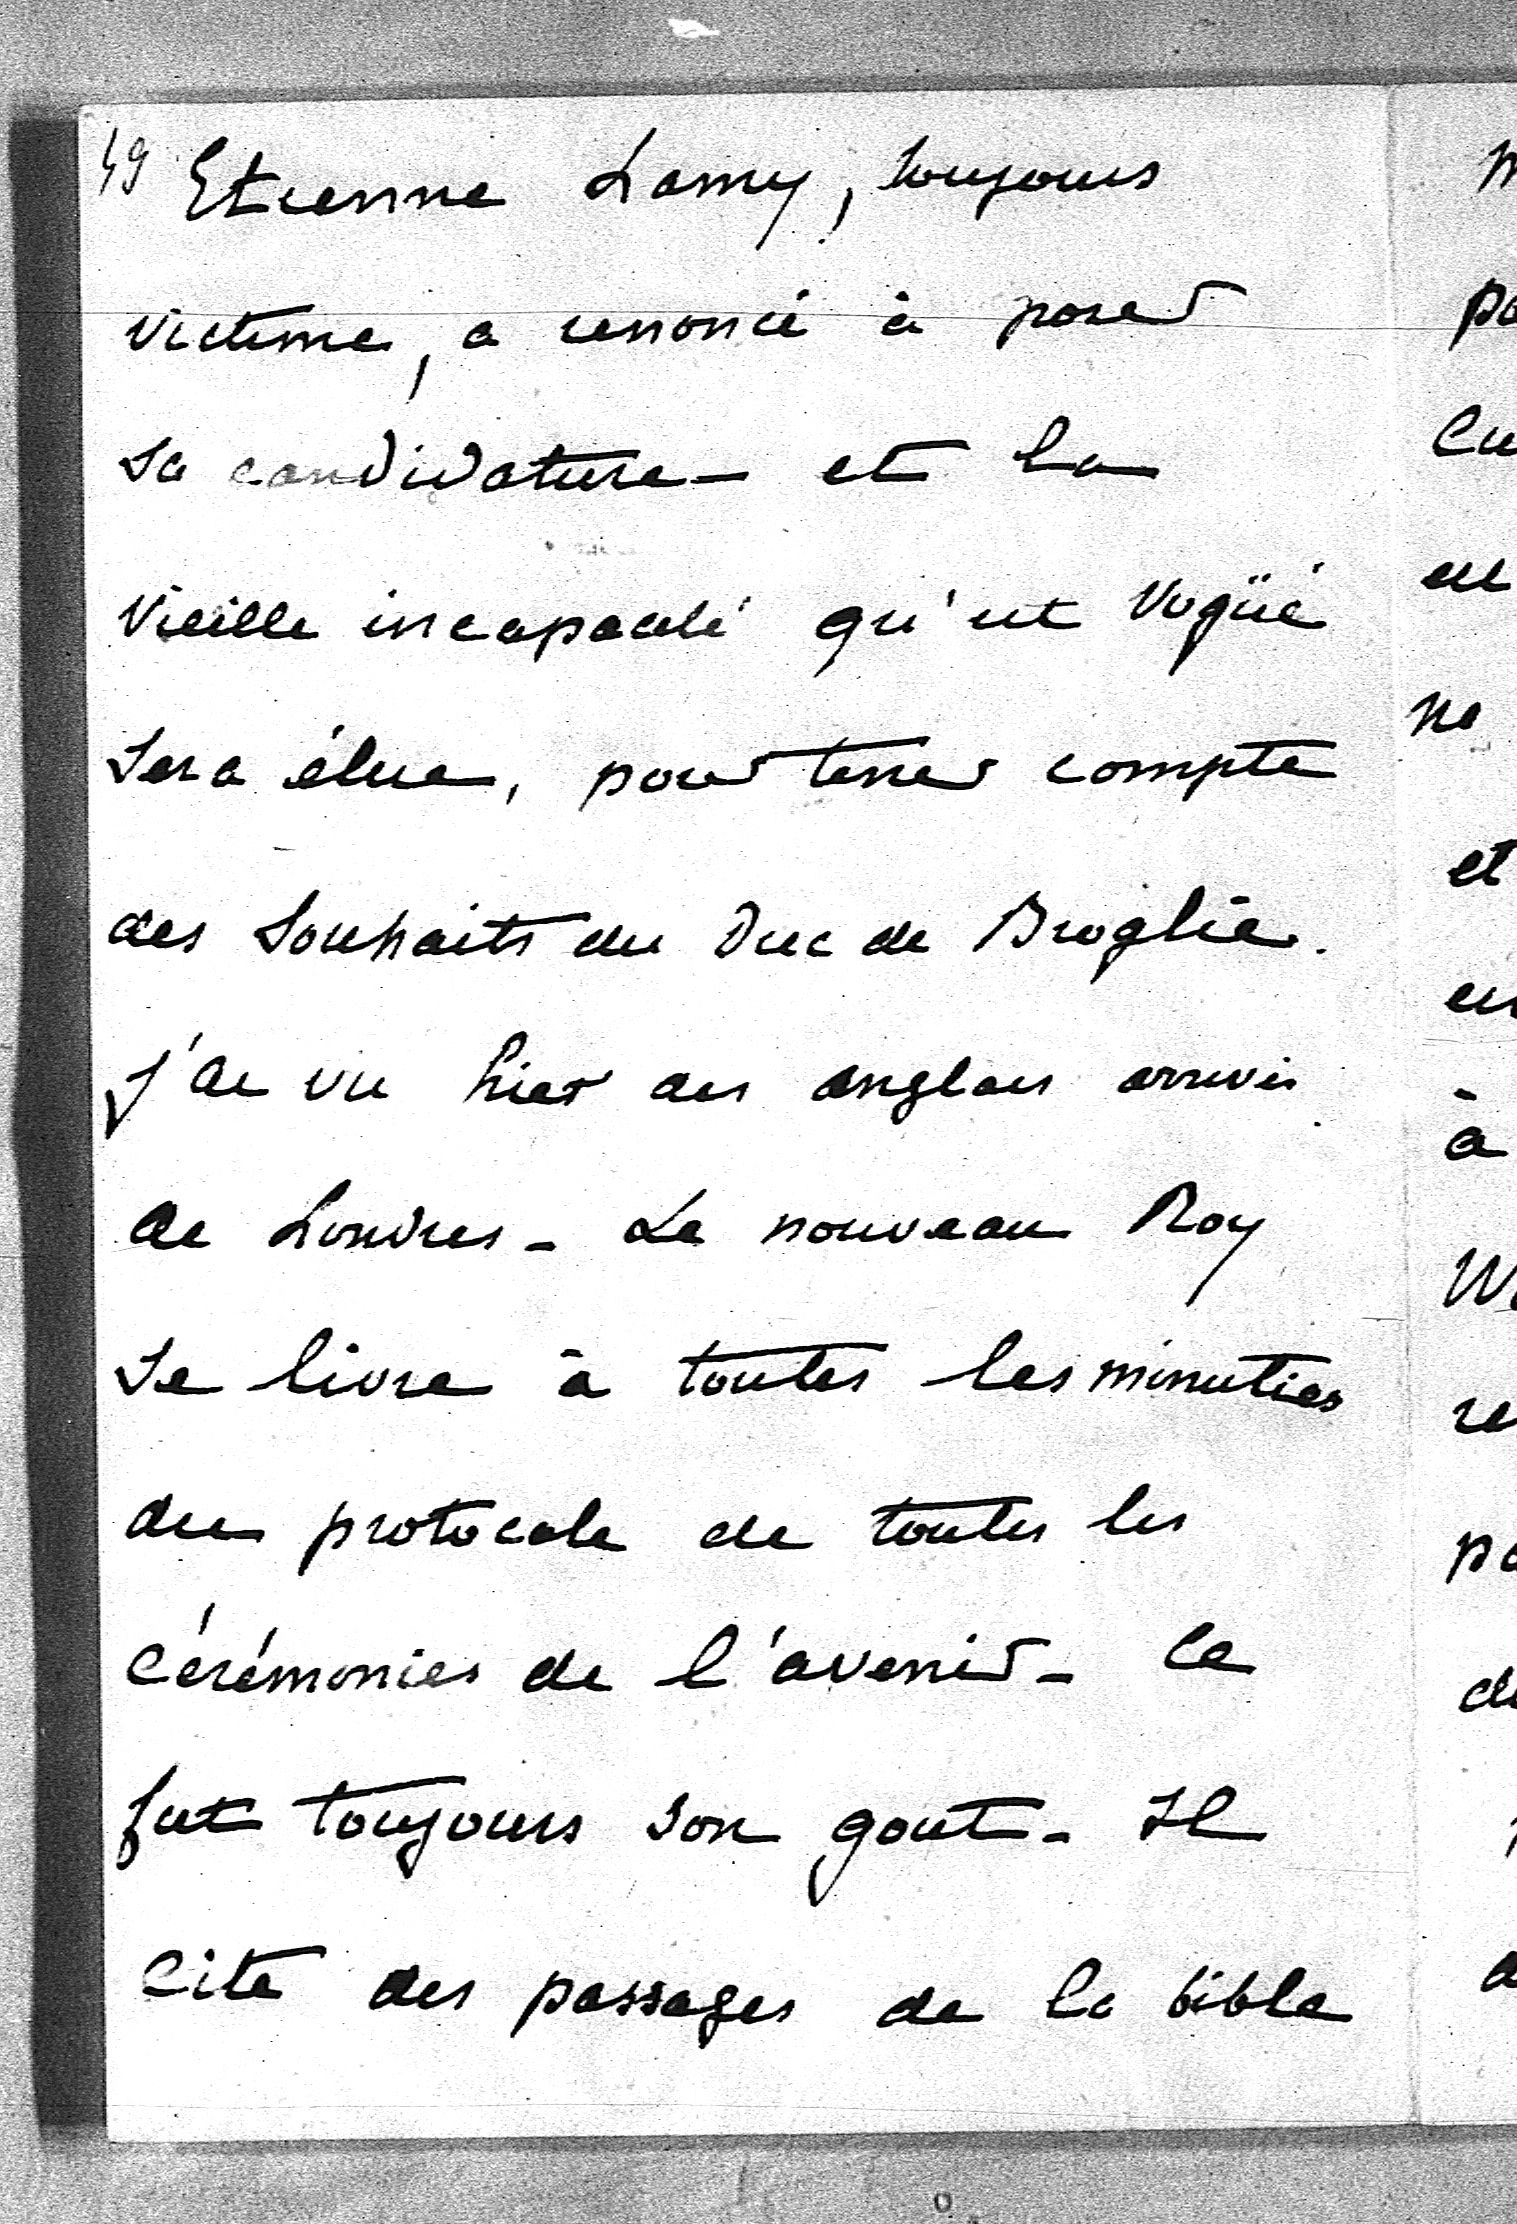 49 Etienne Lamy, toujours
victime, a renoncé à poser
sa candidature - et la
vieille incapacité qu'est Vogüé
sera élue, pour tenir compte
des souhaits du Duc de Broglie.
J'ai vu hier des anglais arrivés
de Londres - Le nouveau Roy
se livre à toutes les minuties
du protocole de toutes les
cérémonies de l'avenir - ce
fut toujours son gout - Il
cite des passages de la bible